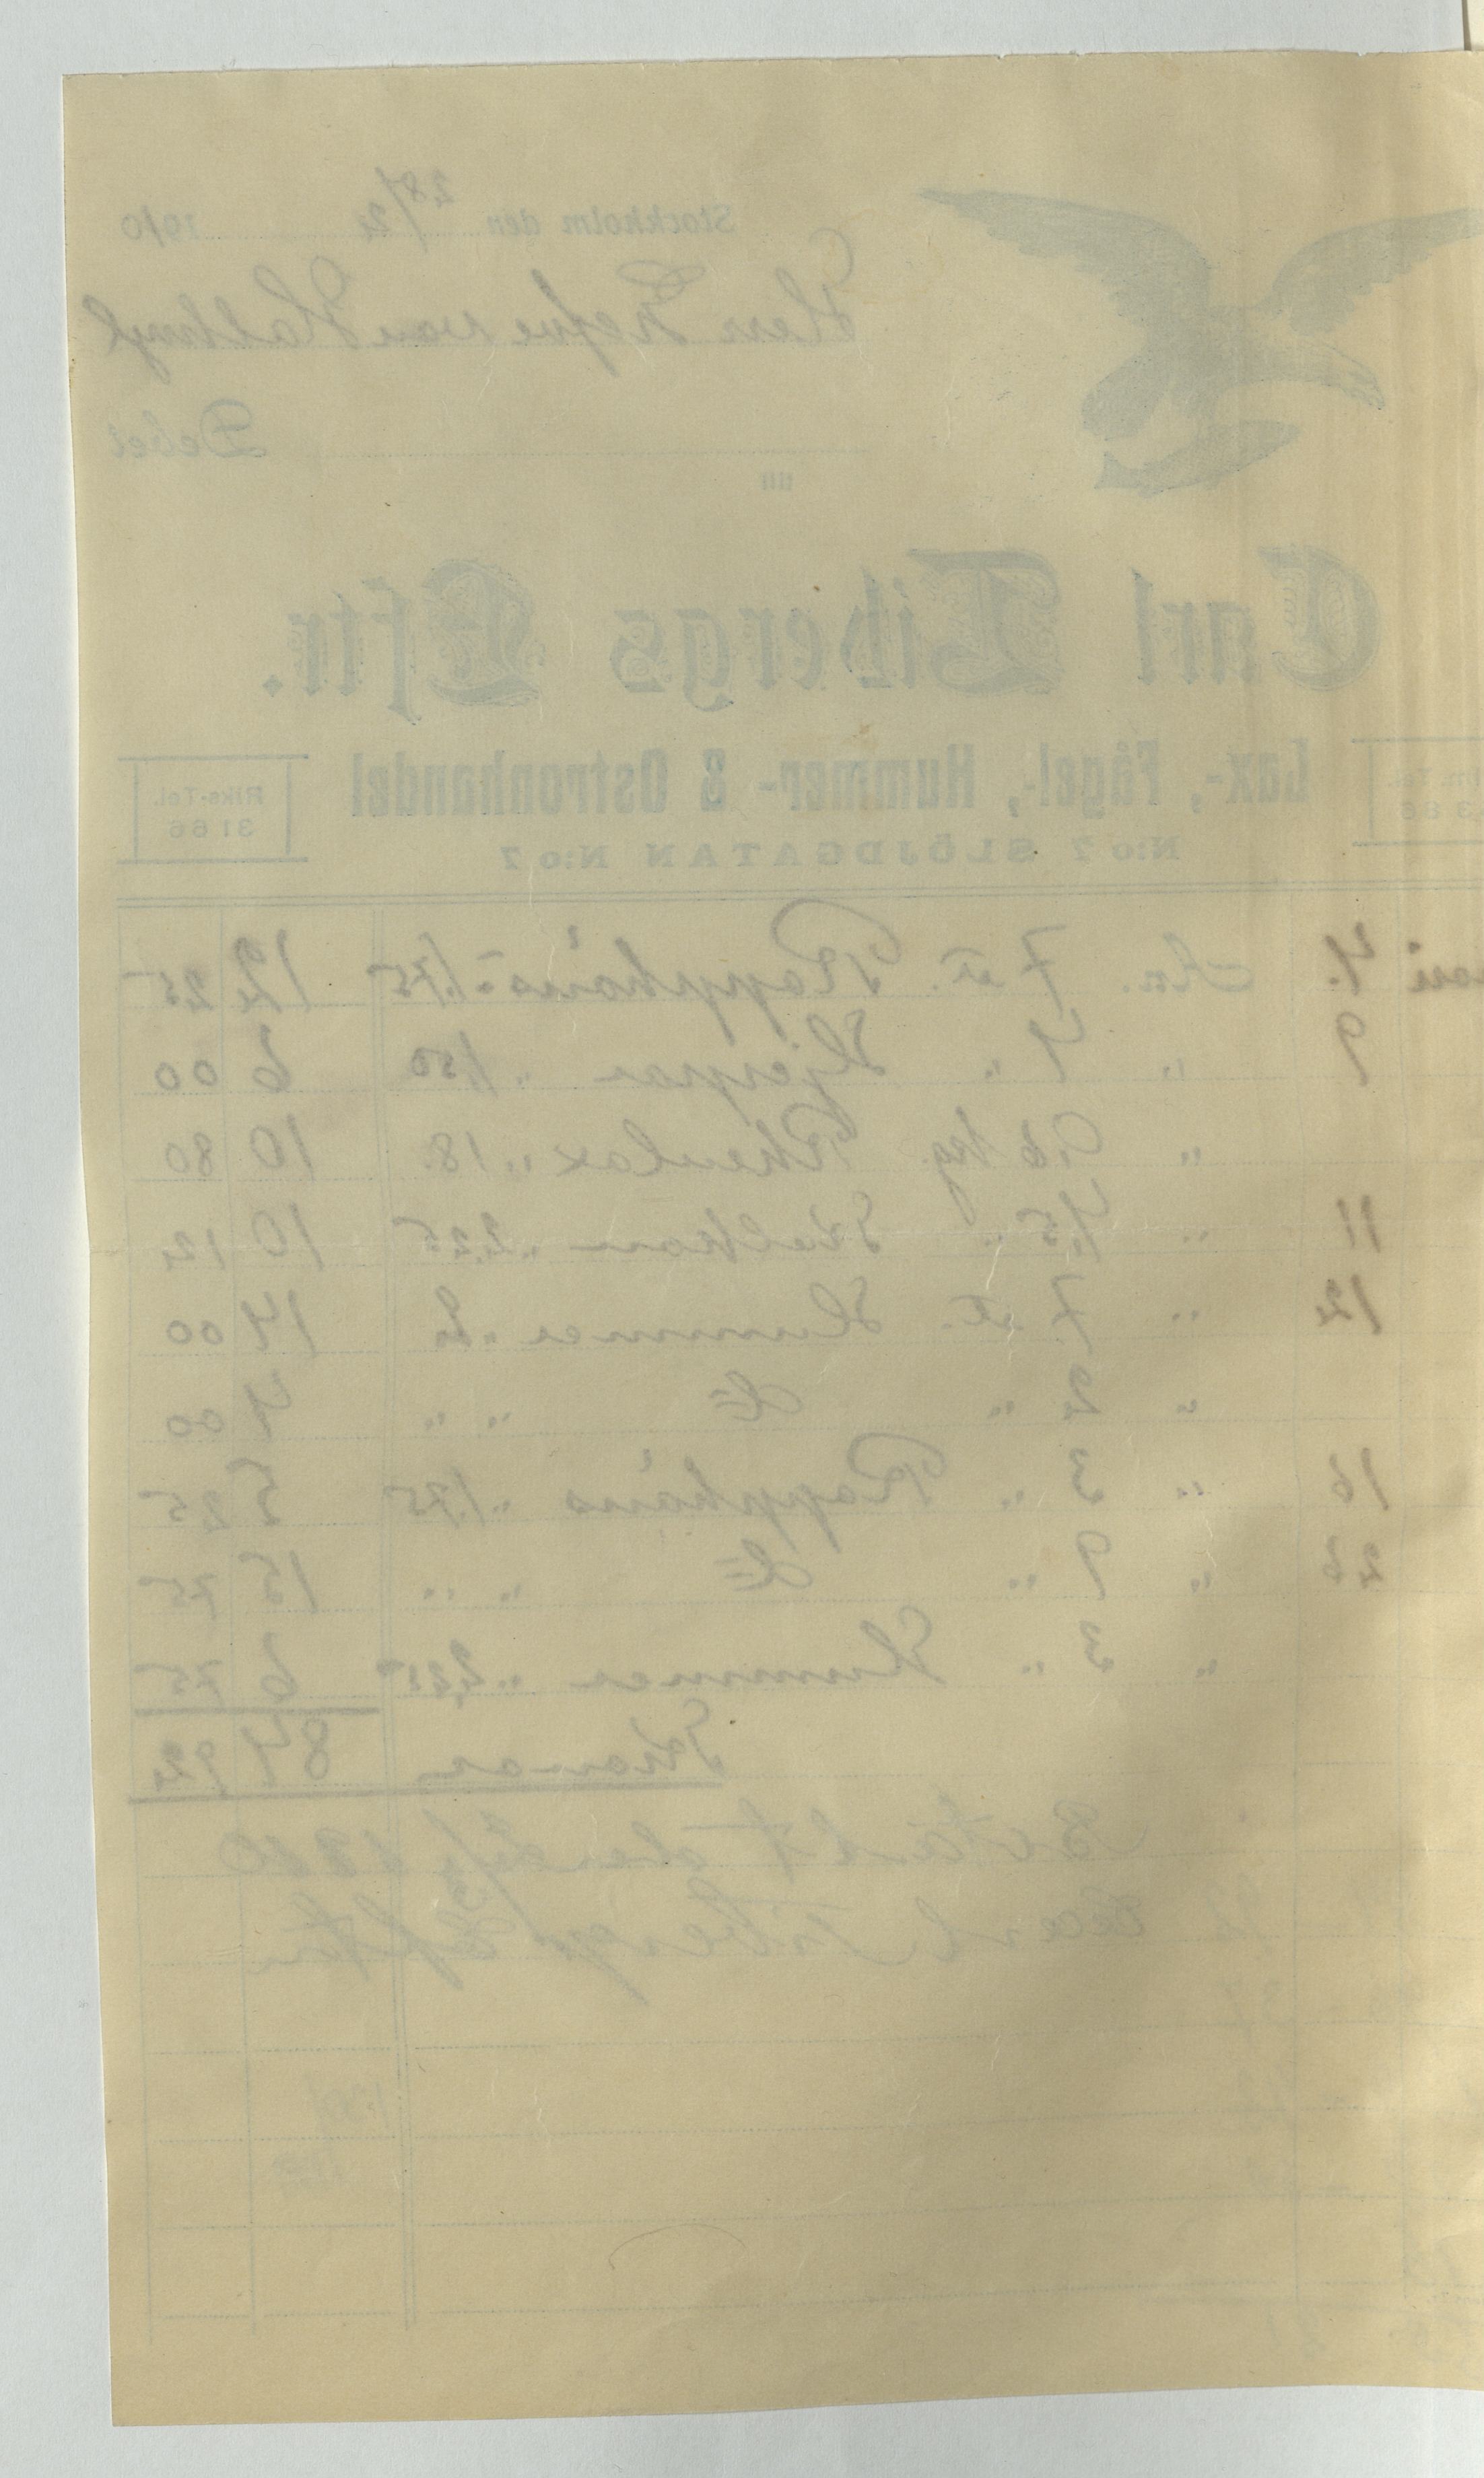 Stockholm den 28/2 1910
Herr Grefve von Hallwyl
Debet
till
Carl Tibergs Eftr.
Lax-, Fågel-, Hummer- & Ostronhandel
Riks-Tel.
3166
N:o 7 SLÖJDGATAN N:o 7
4. An. 7 st. Rapphöns à 1.75 12 25
9 " 4 " Hjerpar " 1,50 6 00
" 0,6 kg. Rhenlax " 18. 10 80
11 " 4,5 " " 2,25 10 12
12 " 7 st. Hummer " 2 14 00
" 2 " d:o " " 4 00
16 " 3 " Rapphöns " 1.75 5 25
26 " 9 " d:o " " 15 75
" 3 " Hummer " 2,25 6 75
Kronor 84 92
Betalt den 2/3 1910
Carl Tibergs Eftr.